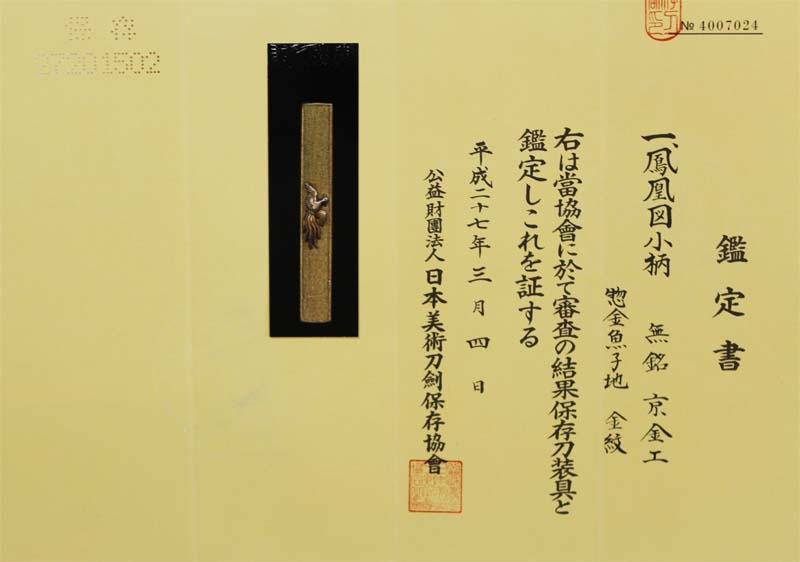 鑑定書
一、鳳凰図小柄 無銘 京金工
惣金魚子地 金紋
右は當協會に於て審査の結果保存刀装具と
鑑定しこれを証する
平成二十七年三月四日
公益財團法人 日本美術刀劍保存協會
№ 4007024
保存
27201502